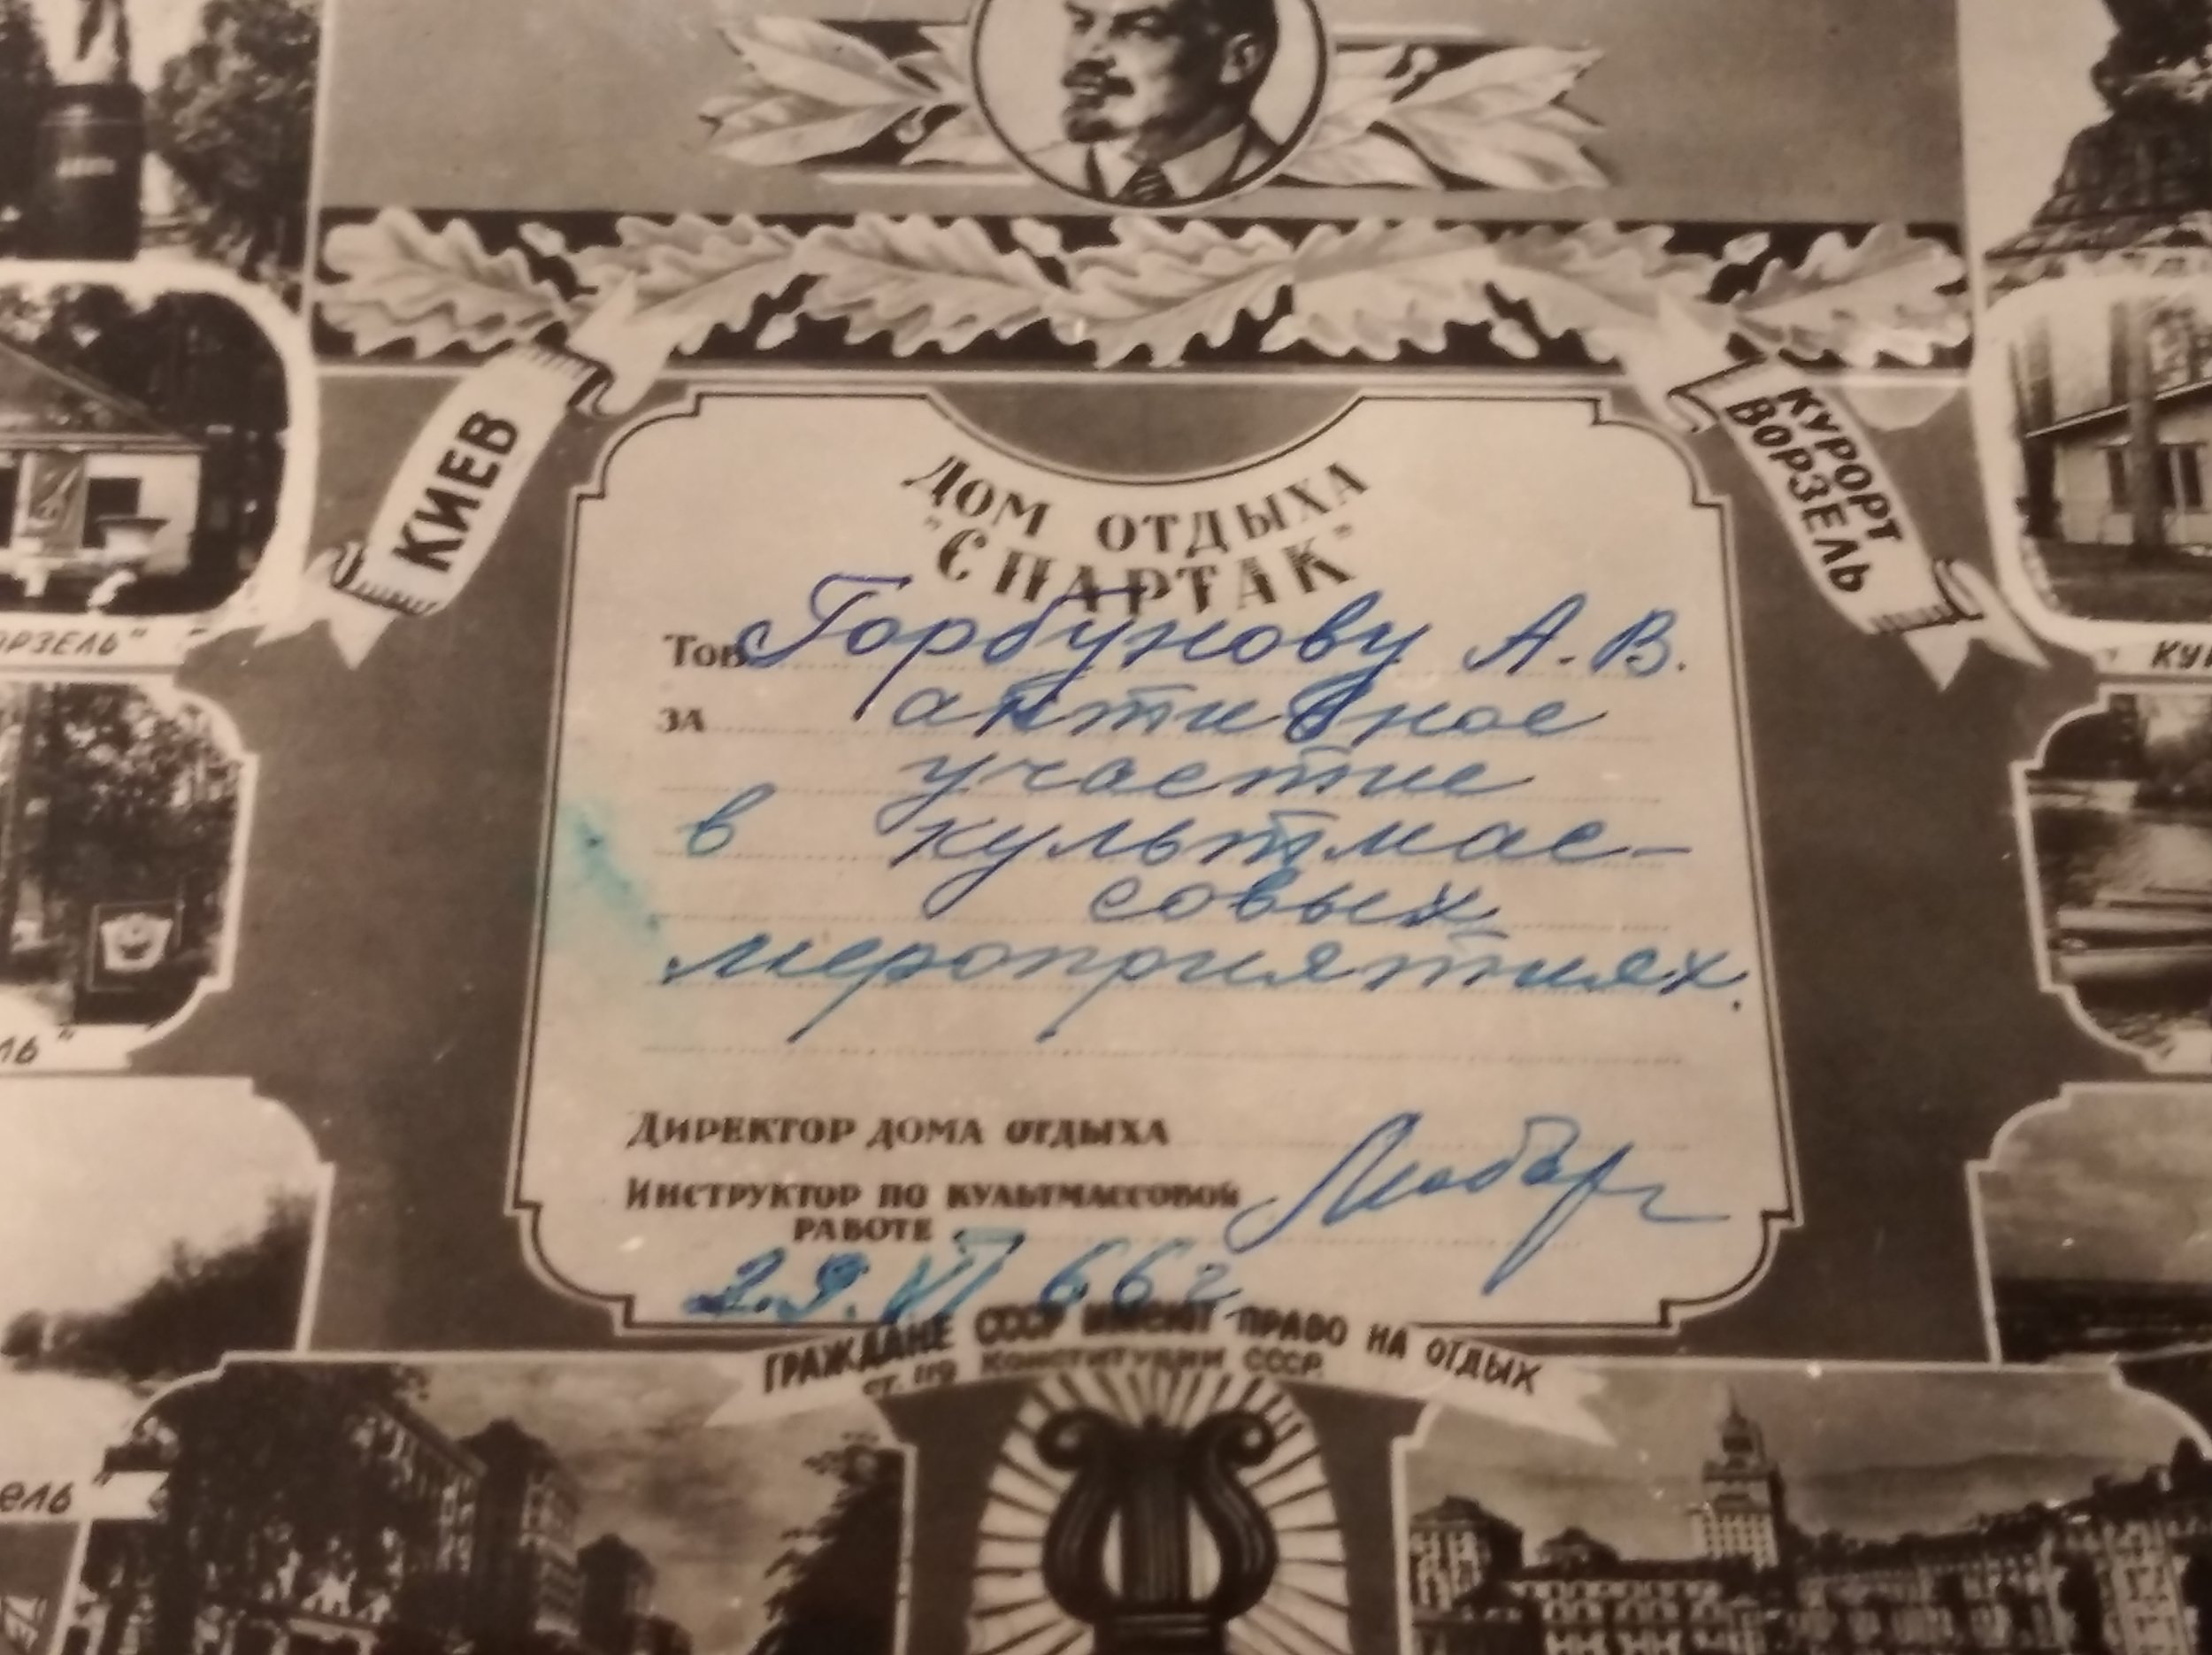 КИЕВ
КУРОРТ
ВОРЗЕЛЬ
ДОМ ОТДЫХА
"СПАРТАК"
Тов. Горбунову А. В.
за активное
участие
в культмас-
совых
мероприятиях.
Директор дома отдыха
Инструктор по культмассовой
работе
29. VI 66 г
ГРАЖДАНЕ СССР ИМЕЮТ ПРАВО НА ОТДЫХ
ст. 119 Конституции СССР.
ОРЗЕЛЬ"
КУ
ЛЬ"
ель"